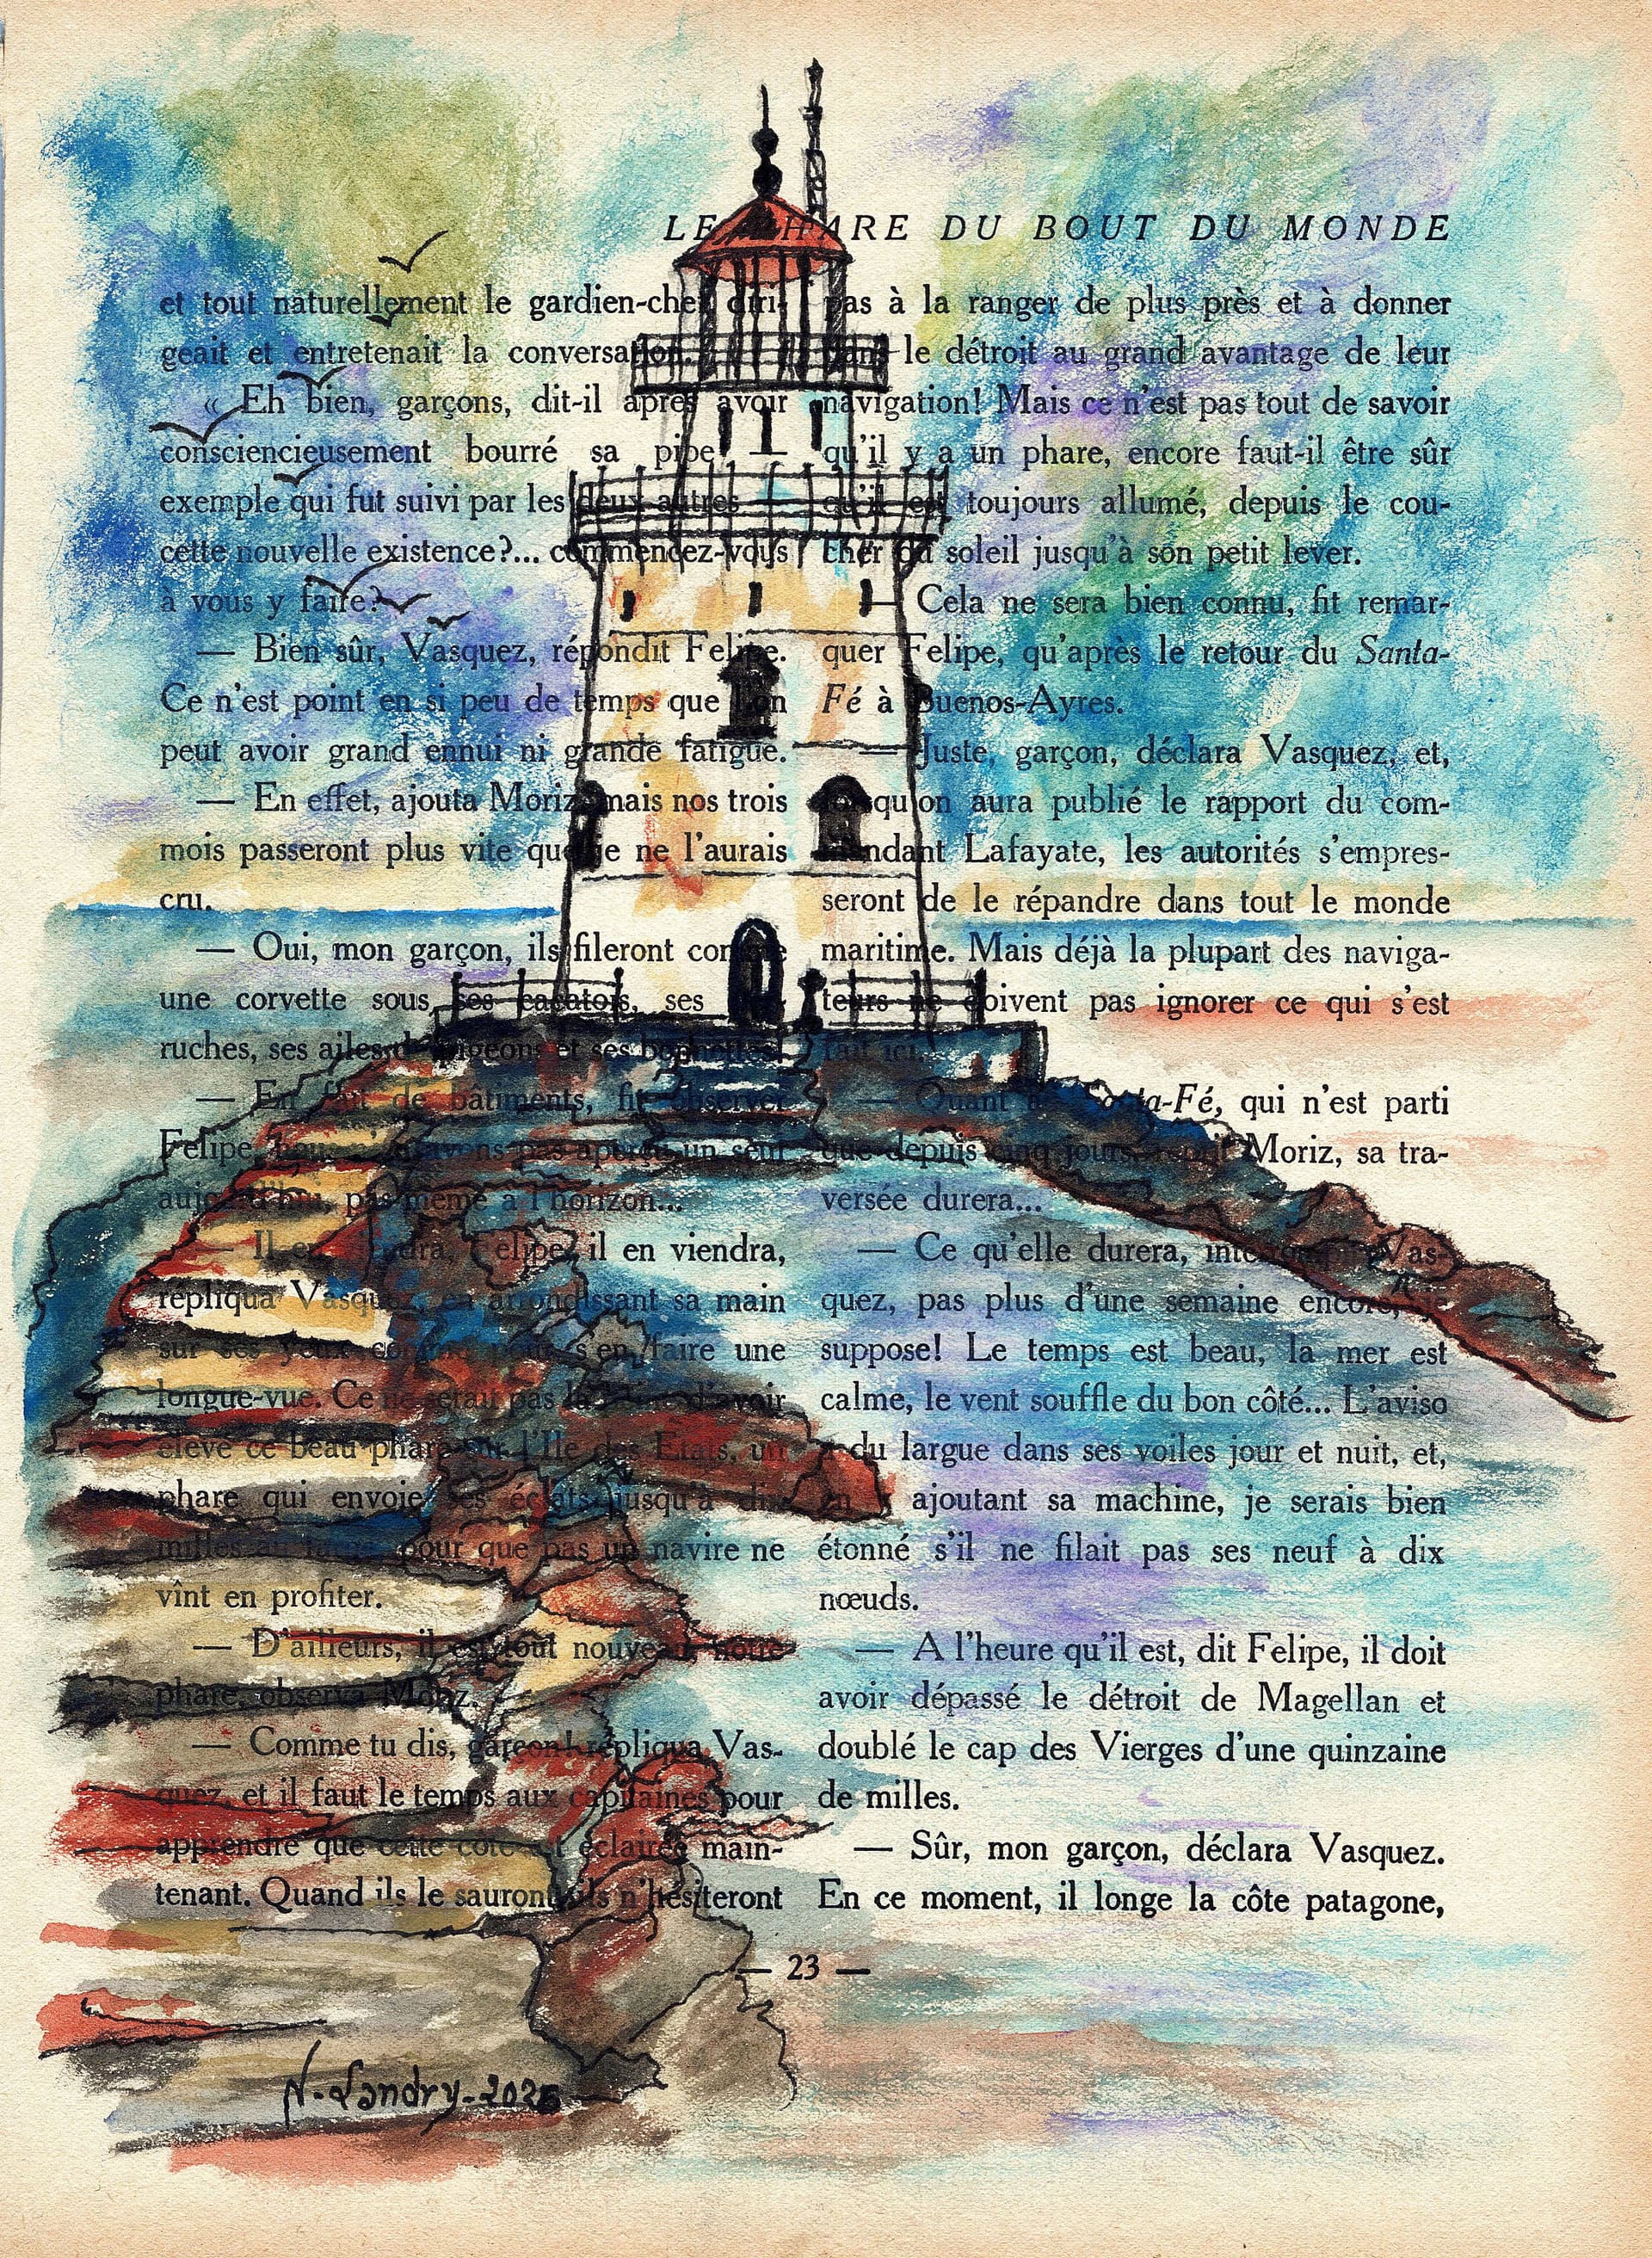 LE PHARE DU BOUT DU MONDE
et tout naturellement le gardien-chef diri-
geait et entretenait la conversation.
« Eh bien, garçons, dit-il après avoir
consciencieusement bourré sa pipe —
exemple qui fut suivi par les deux autres
cette nouvelle existence?... commencez-vous
à vous y faire?
— Bien sûr, Vasquez, répondit Felipe.
Ce n'est point en si peu de temps que l'on
peut avoir grand ennui ni grande fatigue.
— En effet, ajouta Moriz, mais nos trois
mois passeront plus vite que je ne l'aurais
cru.
— Oui, mon garçon, ils fileront comme
une corvette sous ses cacatois, ses
ruches, ses ailes de pigeons et ses bonnettes!
— En fait de bâtiments, fit observer
Felipe, nous n'avons pas aperçu un seul
aujourd'hui, pas même à l'horizon...
— Il en viendra, Felipe, il en viendra,
répliqua Vasquez, en arrondissant sa main
sur ses yeux comme pour s'en faire une
longue-vue. Ce ne serait pas la peine d'avoir
élevé ce beau phare sur l'Ile des Etats, un
phare qui envoie ses éclats jusqu'à dix
milles au large, pour que pas un navire ne
vînt en profiter.
— D'ailleurs, il est tout nouveau, notre
phare, observa Moriz.
— Comme tu dis, garçon! répliqua Vas-
quez, et il faut le temps aux capitaines pour
apprendre que cette côte est éclairée main-
tenant. Quand ils le sauront, ils n'hésiteront
pas à la ranger de plus près et à donner
dans le détroit au grand avantage de leur
navigation! Mais ce n'est pas tout de savoir
qu'il y a un phare, encore faut-il être sûr
qu'il est toujours allumé, depuis le cou-
cher du soleil jusqu'à son petit lever.
— Cela ne sera bien connu, fit remar-
quer Felipe, qu'après le retour du Santa-
Fé à Buenos-Ayres.
— Juste, garçon, déclara Vasquez, et,
lorsqu'on aura publié le rapport du com-
mandant Lafayate, les autorités s'empres-
seront de le répandre dans tout le monde
maritime. Mais déjà la plupart des naviga-
teurs ne doivent pas ignorer ce qui s'est
fait ici.
— Quant au Santa-Fé, qui n'est parti
que depuis cinq jours, reprit Moriz, sa tra-
versée durera...
— Ce qu'elle durera, interrompit Vas-
quez, pas plus d'une semaine encore, je
suppose! Le temps est beau, la mer est
calme, le vent souffle du bon côté... L'aviso
a du largue dans ses voiles jour et nuit, et,
en y ajoutant sa machine, je serais bien
étonné s'il ne filait pas ses neuf à dix
nœuds.
— A l'heure qu'il est, dit Felipe, il doit
avoir dépassé le détroit de Magellan et
doublé le cap des Vierges d'une quinzaine
de milles.
— Sûr, mon garçon, déclara Vasquez.
En ce moment, il longe la côte patagone,
— 23 —
N-Landry-2025